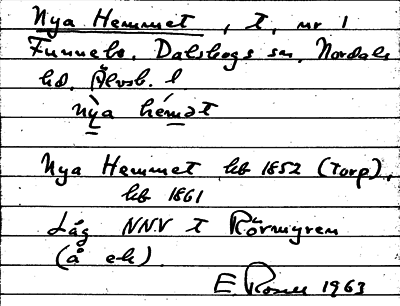 Nya Hemmet, t, nr 1
Funnebo, Dalskogs sn, Nordals
hd, Älvsb. l
nỳa hémət
Nya Hemmet hb 1852 (torp),
hb 1861
Låg NNV t Rörmyren
(å ek).
E 1963